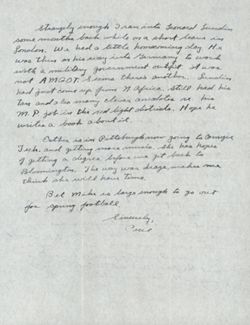 Strangely enough I ran into Leonard Lundin
some months back while on a short leave in
London. We had a little homecoming day. He
was then on his way into Germany to work
with a military government outfit. It was
not AMGOT. Some there's another. Lundin
had just come up from N Africa, still had his
tan and also many clever anecdotes re his
M.P. job in the red light districts. Hope he
writes a book about it.
is in Pittsburgh now going to Carnegie
Tech. and getting more music. She has hopes
of getting a degree before we get back to
Bloomington. The way was drags makes me
think she will have time.
Bet Mike is large enough to go out
for spring football.
Sincerely,